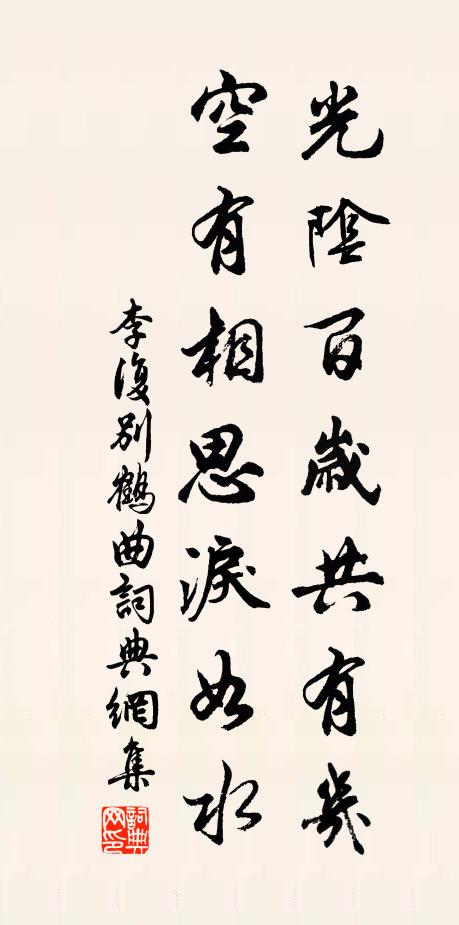 光陰百歲共有幾
空有相思淚如水
李復別鶴曲詞典網集
詞典網印